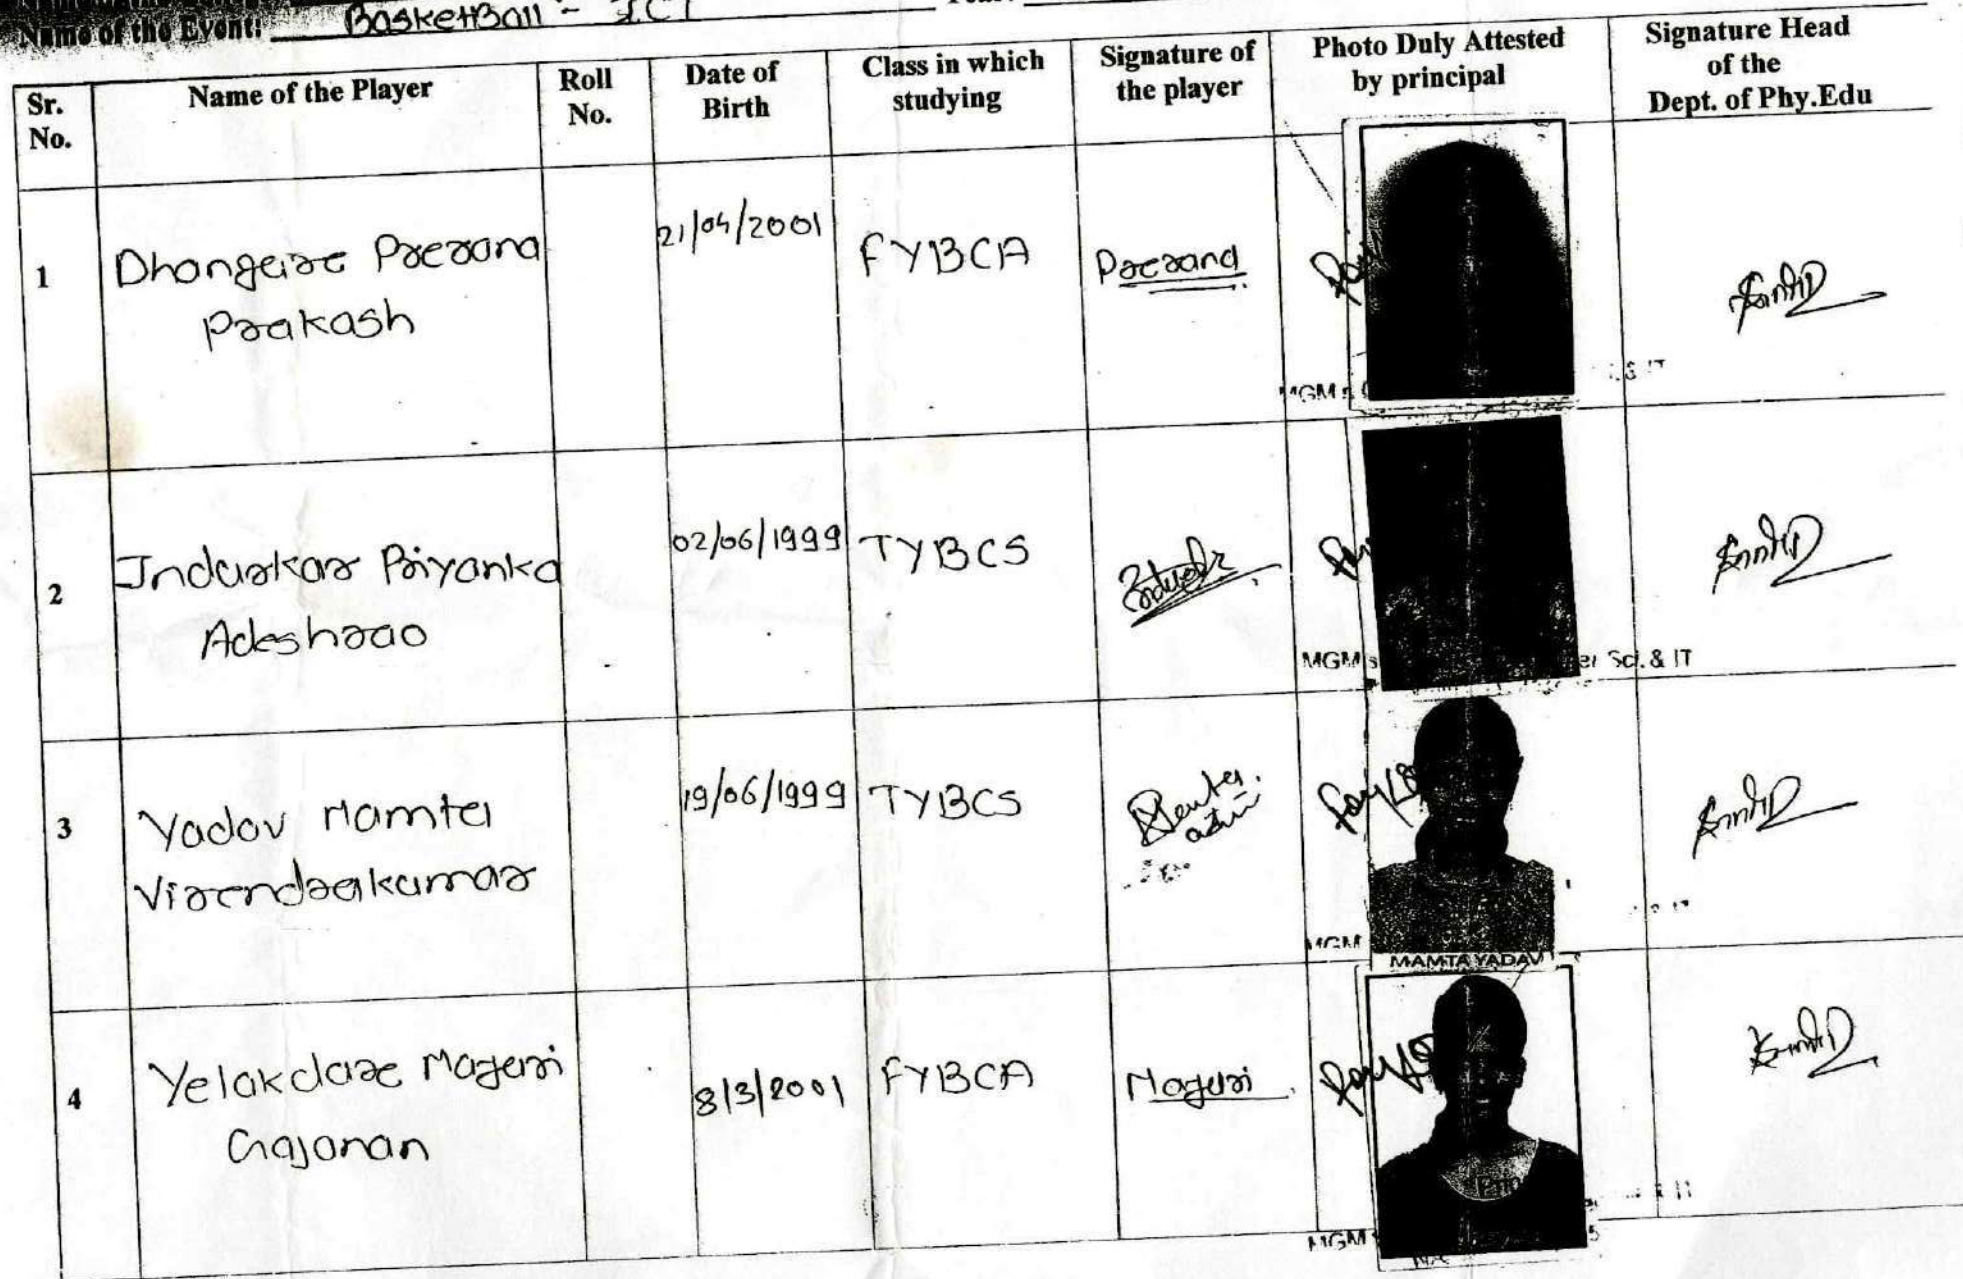 Name of the Event: BasketBall - ICT
Sr. No. Name of the Player Roll No. Date of Birth Class in which studying Signature of the player Photo Duly Attested by principal Signature Head of the Dept. of Phy.Edu
1 Dhangare Prerana Prakash 21/04/2001 FYBCA Prerana
MGM
& IT
2 Indurkar Priyanka Adeshrao 02/06/1999 TYBCS
MGM's Sci. & IT
3 Yadav Mamta Virendrakumar 19/06/1999 TYBCS
MGM
MAMTA YADAV
4 Yelakdare Mayuri Gajanan 8/3/2001 FYBCA Mayuri
MGM